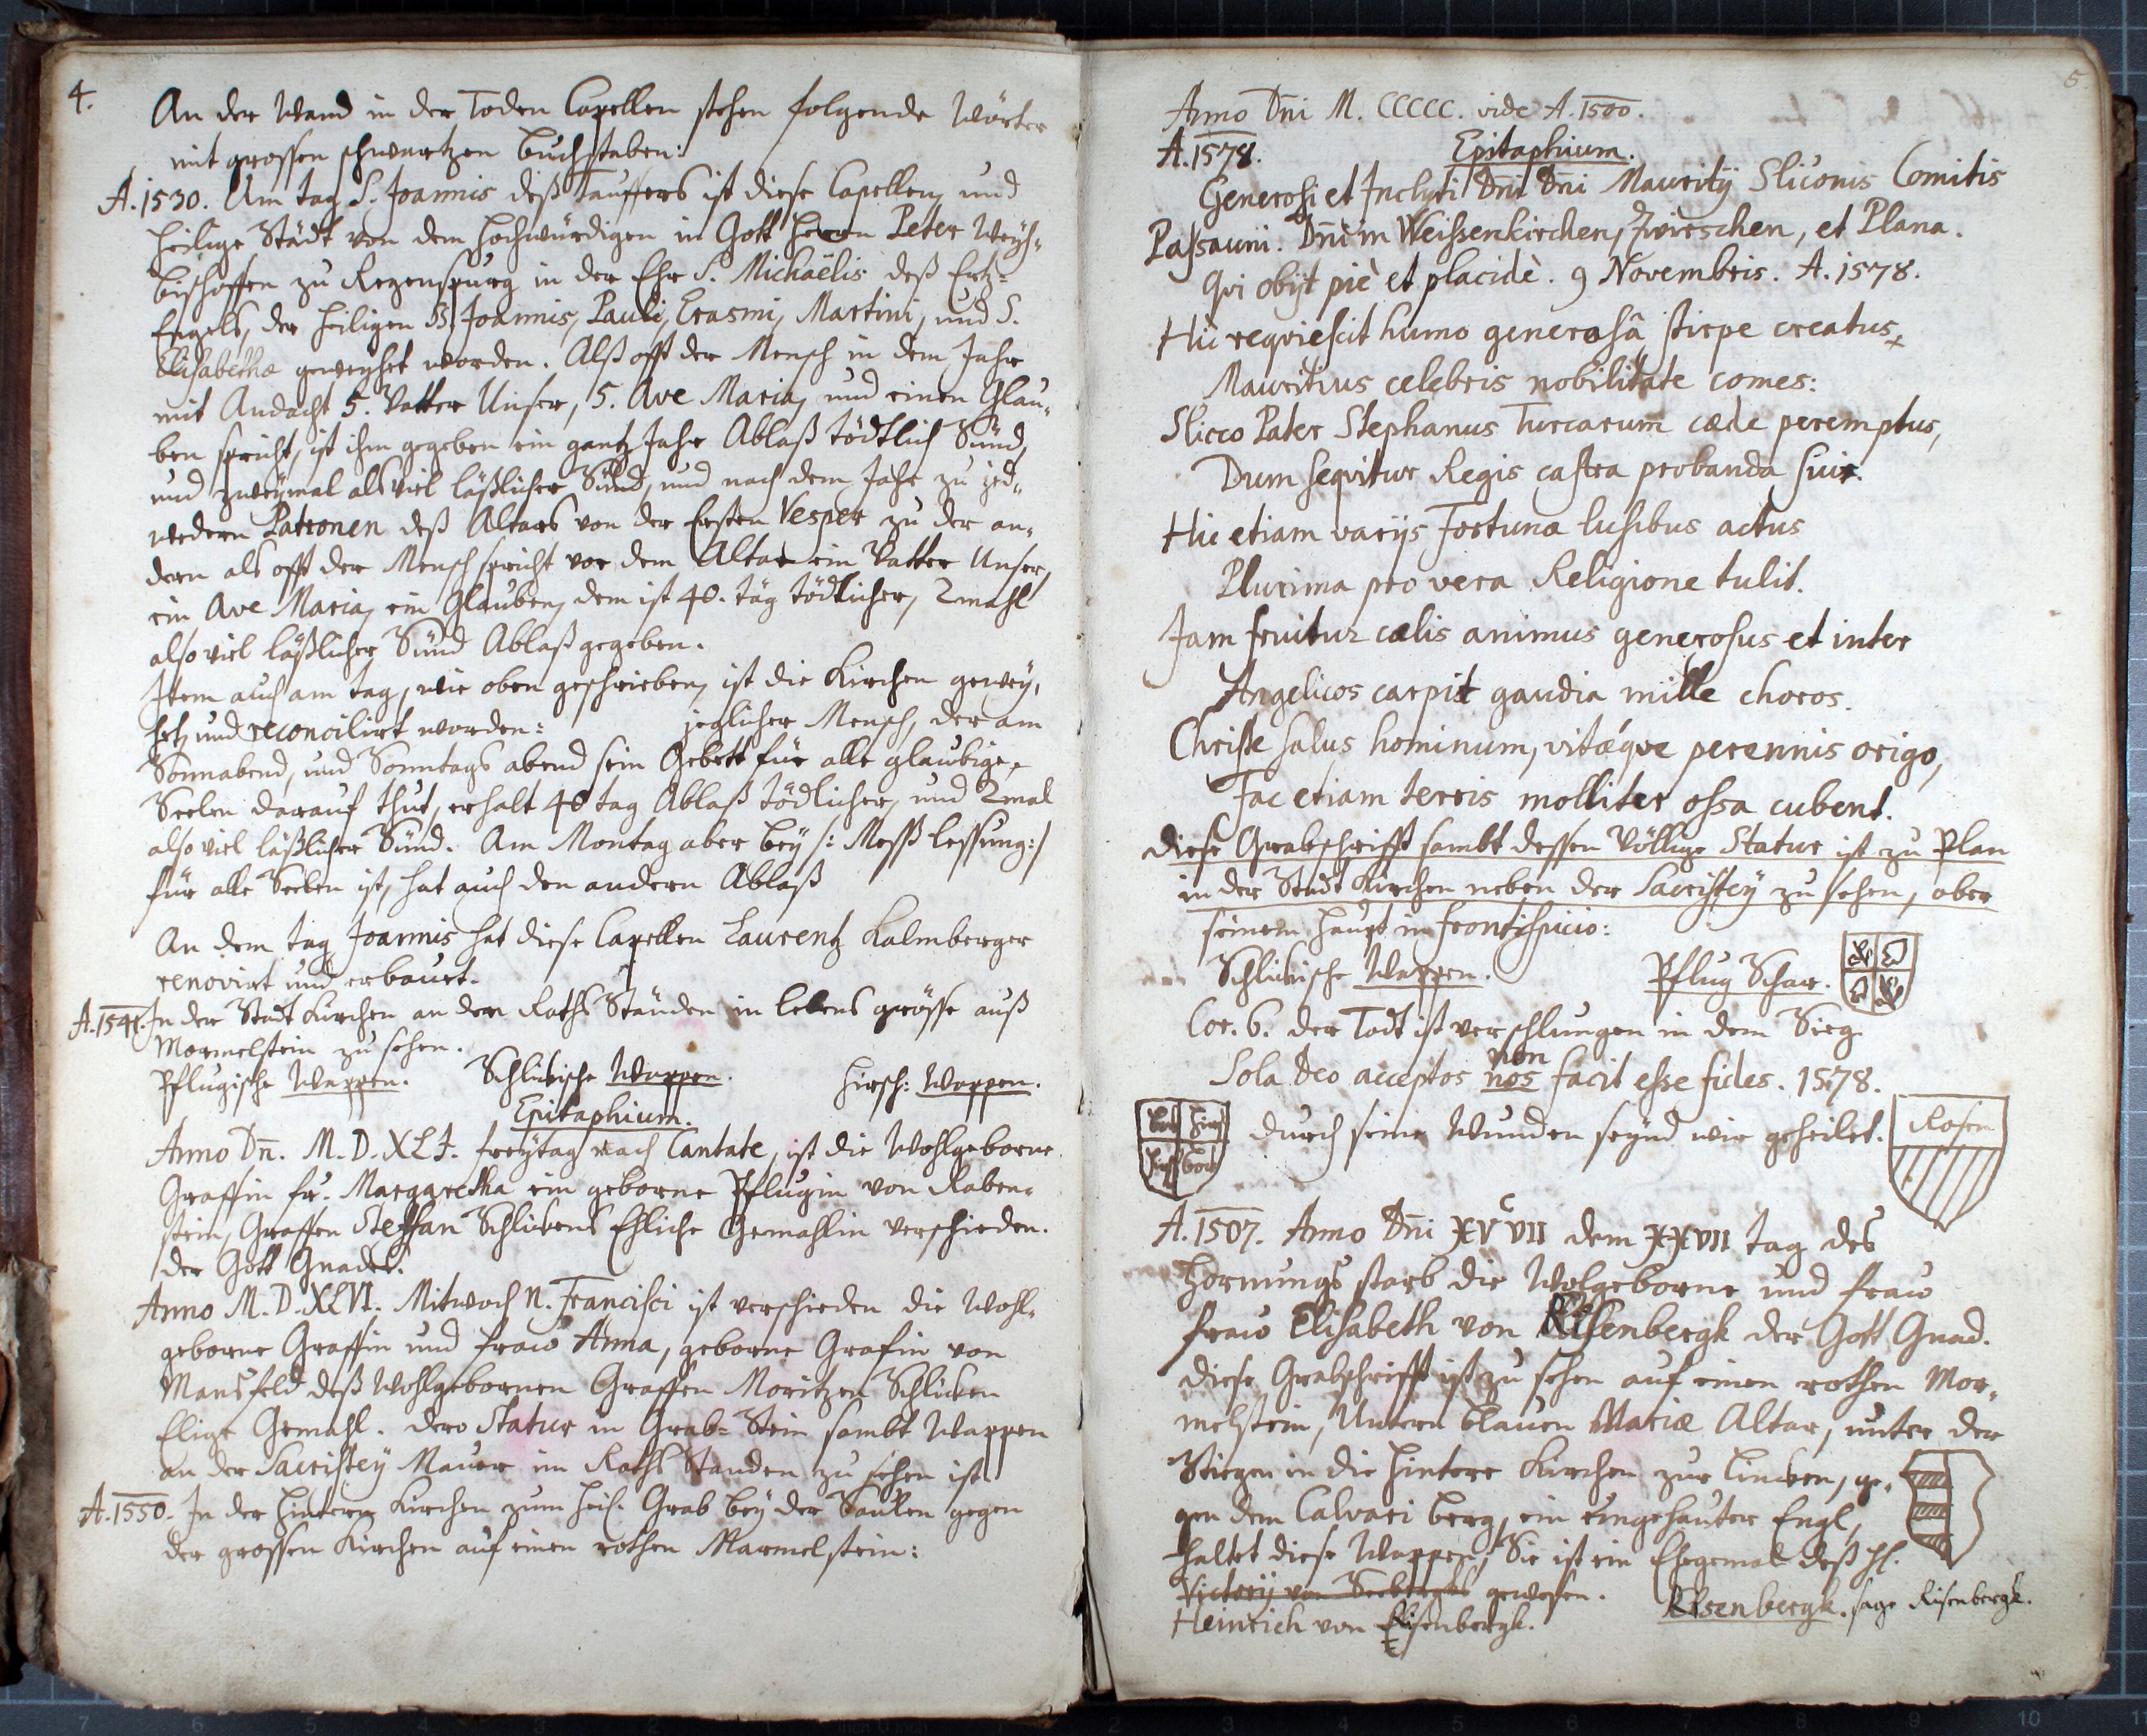 4.
An der Wand in der Toden Capellen stehen folgende Wörter
mit grossen schwartzen Buchstaben:
A. 1530. Am tag S. Joannis deß Tauffers ist diese Capellen, und
heilige Städt von dem Hochwürdigen in Gott Herrn Peter Weyh-
bischoffen zu Regenspurg in der Ehr S. Michaëlis deß Ertz-
Engels, der heiligen SS. Joannis, Pauli, Erasmi, Martini, und S.
Elisabethæ geweyhet worden. Alß offt der Mensch in dem Jahr
mit Andacht 5. Vatter Unser, 5. Ave Maria, und einen Glau-
ben spricht, ist ihm gegeben ein gantz Jahr Ablaß tödtlich Sünd,
und zweymal als viel läßlicher Sünd, und nach dem Jahr zu jed-
wedern Patronen deß Altars von der Ersten Vesper zu der an-
dern als offt der Mensch spricht vor dem Altar ein Vatter Unser,
ein Ave Maria, ein Glauben, dem ist 40. täg tödtlicher, 2mahl
also viel läßlicher Sünd Ablaß gegeben.
Item auch am tag, wie oben geschrieben, ist die Kirchen gewey-
het, und reconcilirt worden: jeglicher Mensch, der am
Sonnabend, und Sonntags abend sein Gebett für alle glaubige
Seelen darauf thut, erhalt 40 tag Ablaß tödlicher, und 2mal
also viel läßlicher Sünd. Am Montag aber bey /: Meß lessung :/
für alle Seelen ist, hat auch den andern Ablaß
An dem tag Joannis hat diese Capellen Laurentz Kalmberger
renovirt und erbauet.
A. 1541. In der Stadt Kirchen an den Raths Ständen in lebens grösse auß
Marmelstein zu sehen.
Pflugische Wappen. Schlickische Wappen. Hirsch: Wappen.
Epitaphium.
Anno Dn̄. M.D.XLI. freytag nach Cantate, ist die Wohlgeborne
Graffin fr. Margaretha ein geborne Pflugin von Raben-
stein, Graffen Steffan Schlickens Ehliche Gemahlin verschieden.
der Gott Gnadet.
Anno M.D.XLVI. Mitwoch N. Francisci ist verschieden die Wohl-
geborne Graffin und fraw Anna, geborne Grafin von
Mansfeld deß Wohlgebornen Graffen Moritzen Schlicken
Elige Gemahl. dero Statur in Grab-Stein sambt Wappen
an der Sacristey Mauer im Raths Standen zu sehen ist.
A. 1550. In der Hintern Kirchen zum Heil. Grab bey der Saulen gegen
der grossen Kirchen auf einen rothen Marmelstein:
5
Anno Dn̄i M. CCCCC. vide A. 1500.
A. 1578. Epitaphium.
Generosi et Inclyti Dn̄i Dn̄i Mauritÿ Sliconis Comitis
Passauni. Dn̄i in Weissenkirchen, Zwirschen, et Plana.
Qvi obÿt piè et placidè. 9 Novembris. A. 1578.
Hic reqviescit humo generosâ stirpe creatus
Mauritius celebris nobilitate comes:
Slicco Pater Stephanus Turcarum̄ cæde peremptus,
Dum seqvitur Regis castra probanda suis.
Hic etiam varÿs Fortunæ lusibus actus
Plurima pro vera Religione tulit.
Jam fruitur cælis animus generosus et inter
Angelicos carpit gaudia mille choros.
Christe salus hominum, vitæqve perennis origo,
Fac etiam terris molliter ossa cubent.
Diese Grabschrifft sambt dessen Völlige Statur ist zu Plan
in der Stadt Kirchen neben der Sacristey zu sehen, ober
seinem Haupt in frontispicio:
Schlickische Wappen. Pflug Schar.
Cor. 6. der Todt ist verschlungen in dem Sieg.
non
Sola Deo acceptos nos facit esse fides. 1578.
durch seine Wunden seynd wir geheilet. Rosen
A. 1507. Anno Dn̄i XVᶜ VII dem XXVII tag des
Hornungs starb die Wolgeborne und fraw
fraw Elisabeth von Risenbergk der Gott Gnad.
diese Grabschrifft ist zu sehen auf einen rothen Mar-
melstein, Untern blauen Mariæ Altar, unter der
Stiegen in die Hintere Kirchen zur Lincken, ge-
gen dem Calvari berg, ein eingehauter Engl,
haltet diese Wappen, Sie ist ein Ehegemal deß H.
Victorÿ von Seebergks gewesen. Risenbergk. sage Risenbergk.
Heinrich von Eisenbergk.